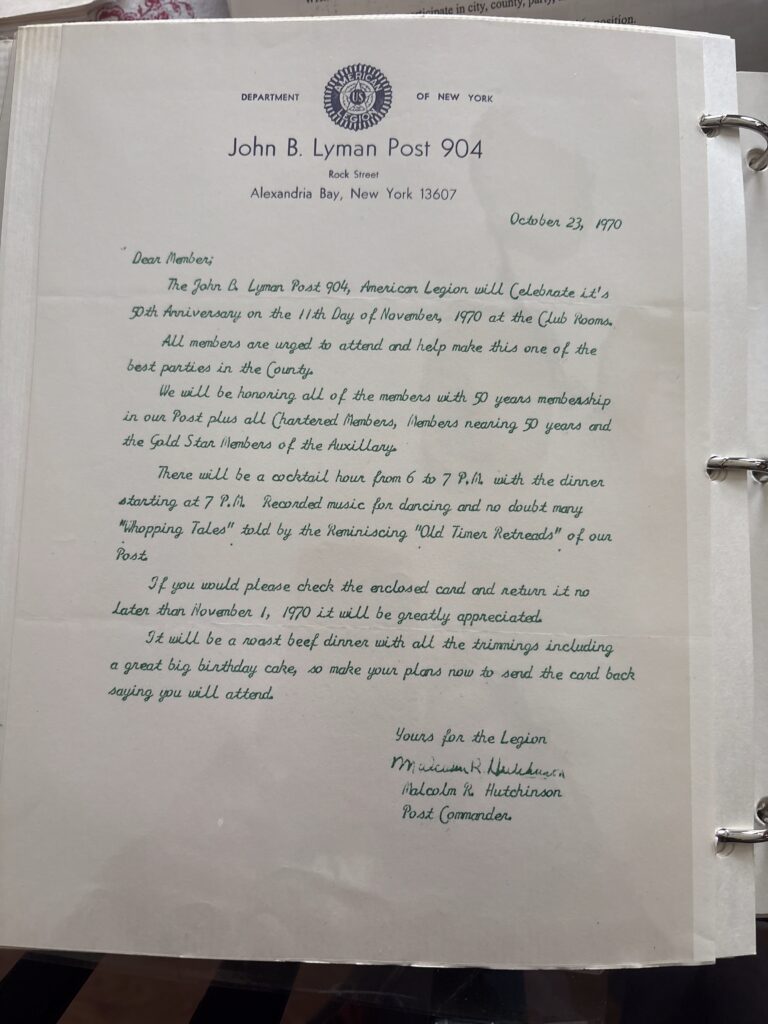 participate in city, county, party,
position.
DEPARTMENT OF NEW YORK
AMERICAN
US
LEGION
John B. Lyman Post 904
Rock Street
Alexandria Bay, New York 13607
October 23, 1970
Dear Member;
The John B. Lyman Post 904, American Legion will Celebrate it's
50th Anniversary on the 11th Day of November, 1970 at the Club Rooms.
All members are urged to attend and help make this one of the
best parties in the County.
We will be honoring all of the members with 50 years membership
in our Post plus all Chartered Members, Members nearing 50 years and
the Gold Star Members of the Auxillary.
There will be a cocktail hour from 6 to 7 P.M. with the dinner
starting at 7 P.M. Recorded music for dancing and no doubt many
"Whopping Tales" told by the Reminiscing "Old Timer Retreads" of our
Post.
If you would please check the enclosed card and return it no
Later than November 1, 1970 it will be greatly appreciated.
It will be a roast beef dinner with all the trimmings including
a great big birthday cake, so make your plans now to send the card back
saying you will attend.
Yours for the Legion
Malcolm R. Hutchinson
Malcolm R. Hutchinson
Post Commander.